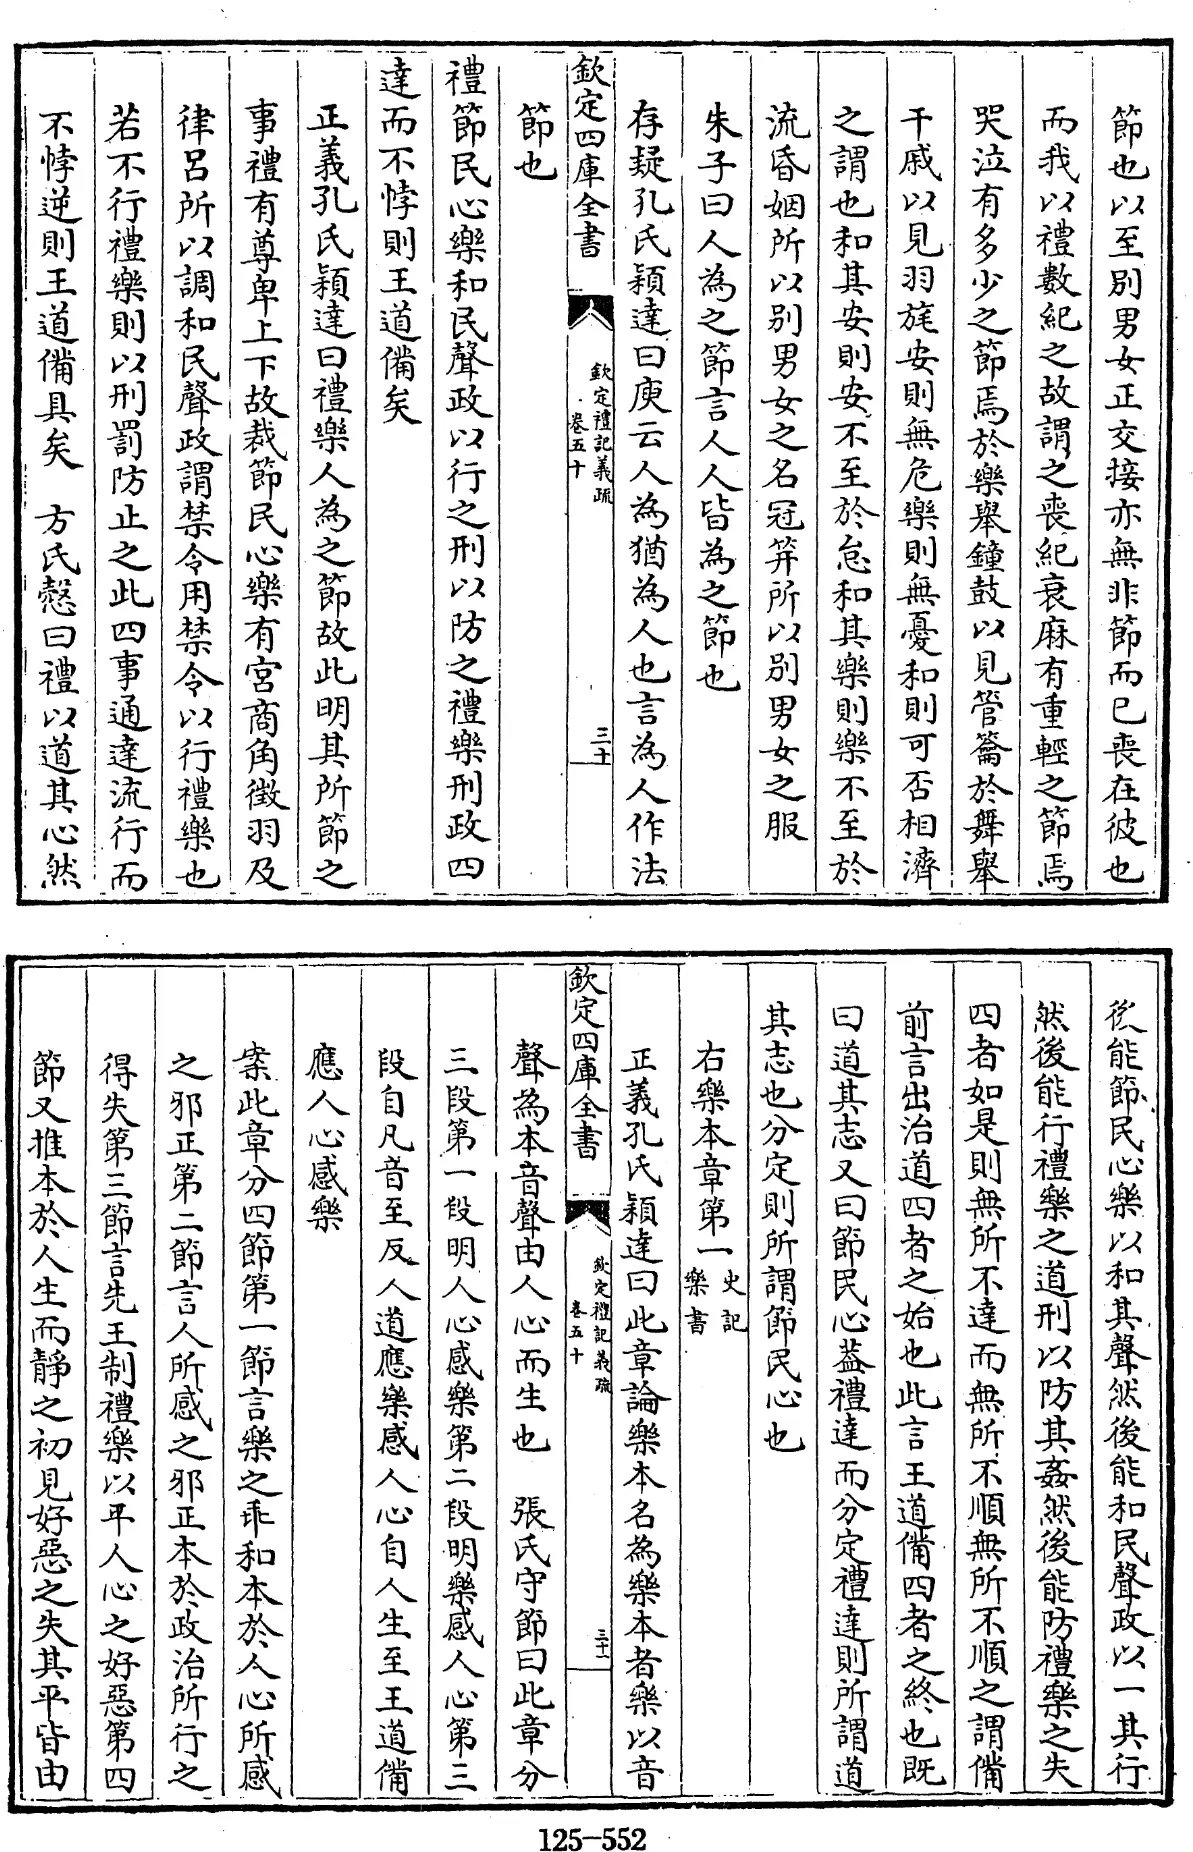 節也以至別男女正交接亦無非節而已喪在彼也
而我以禮數紀之故謂之喪紀衰麻有重輕之節焉
哭泣有多少之節焉於樂舉鐘鼓以見管籥於舞舉
干戚以見羽旄安則無危樂則無憂和則可否相濟
之謂也和其安則安不至於怠和其樂則樂不至於
流昏姻所以別男女之名冠筓所以別男女之服
朱子曰人為之節言人人皆為之節也
存疑孔氏穎達曰庾云人為猶為人也言為人作法
欽定四庫全書
欽定禮記義疏
卷五十
三十
節也
禮節民心樂和民聲政以行之刑以防之禮樂刑政四
達而不悖則王道備矣
正義孔氏穎達曰禮樂人為之節故此明其所節之
事禮有尊卑上下故裁節民心樂有宮商角徵羽及
律呂所以調和民聲政謂禁令用禁令以行禮樂也
若不行禮樂則以刑罰防止之此四事通達流行而
不悖逆則王道備具矣　方氏慤曰禮以道其心然
後能節民心樂以和其聲然後能和民聲政以一其行
然後能行禮樂之道刑以防其姦然後能防禮樂之失
四者如是則無所不達而無所不順無所不順之謂備
前言出治道四者之始也此言王道備四者之終也既
曰道其志又曰節民心葢禮達而分定禮達則所謂道
其志也分定則所謂節民心也
右樂本章第一史記樂書
正義孔氏穎達曰此章論樂本名為樂本者樂以音
欽定四庫全書
欽定禮記義疏
卷五十
三十一
聲為本音聲由人心而生也　張氏守節曰此章分
三段第一段明人心感樂第二段明樂感人心第三
段自凡音至反人道應樂感人心自人生至王道備
應人心感樂
案此章分四節第一節言樂之乖和本於人心所感
之邪正第二節言人所感之邪正本於政治所行之
得失第三節言先王制禮樂以平人心之好惡第四
節又推本於人生而靜之初見好惡之失其平皆由
125-552